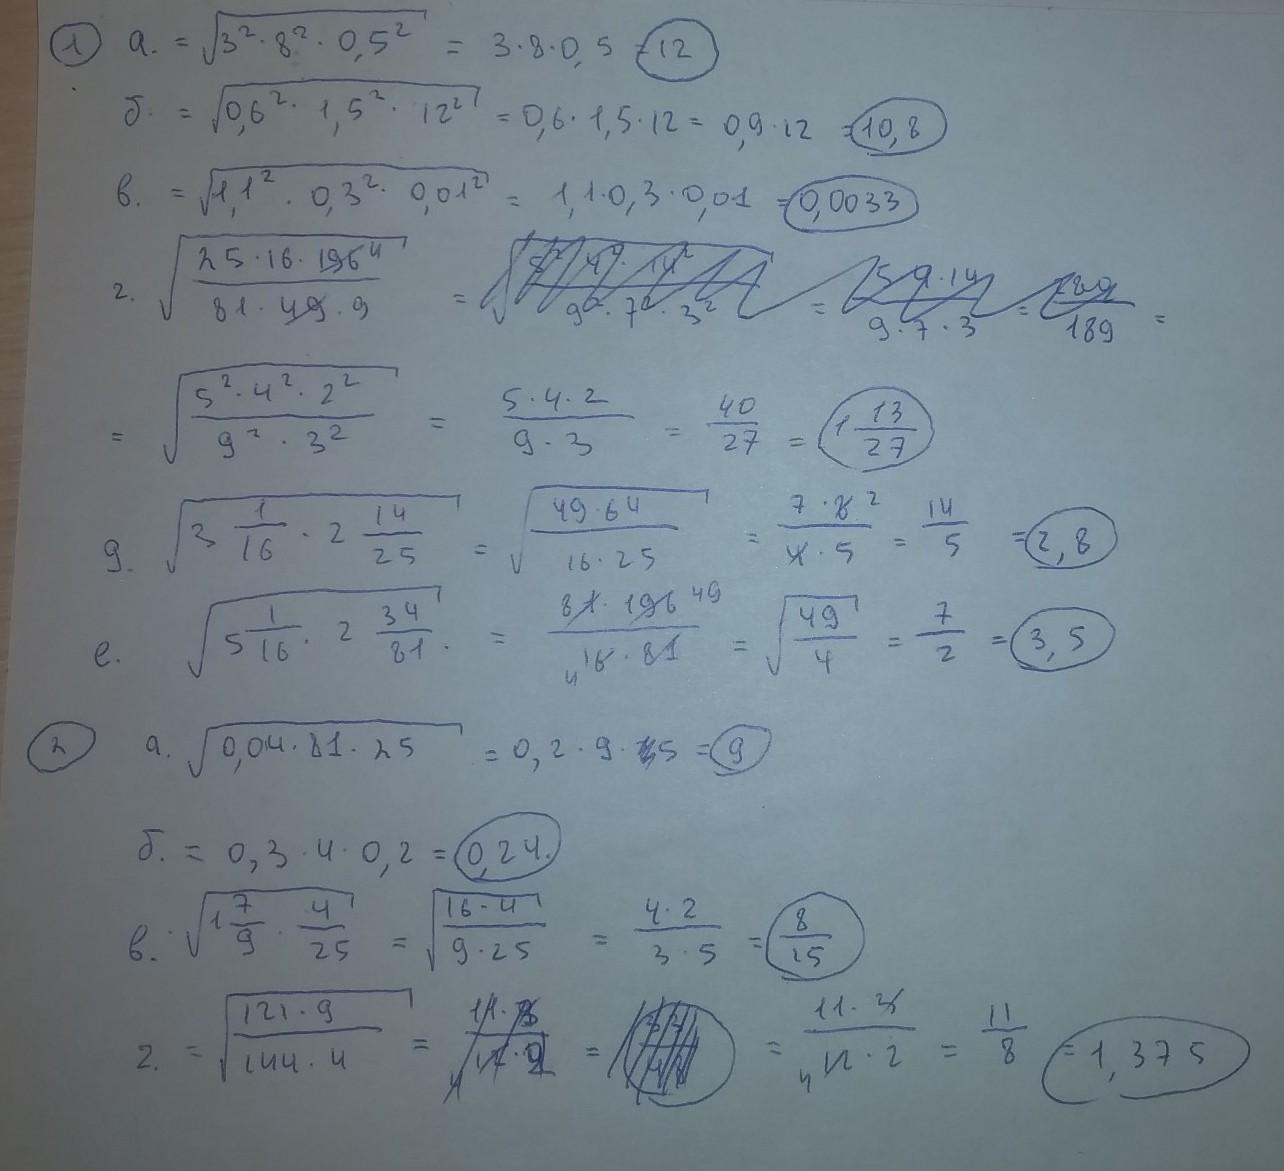 1 а. = √(3² · 8² · 0,5²) = 3 · 8 · 0,5 = 12
б. = √(0,6² · 1,5² · 12²) = 0,6 · 1,5 · 12 = 0,9 · 12 = 10,8
в. = √(1,1² · 0,3² · 0,01²) = 1,1 · 0,3 · 0,01 = 0,0033
г. √(25 · 16 · 196 4 / 81 · 49 · 9) = √(5² · 4² · 14² / 9² · 7² · 3²) = 5 · 9 · 14 / 9 · 7 · 3 = / 189 =
= √(5² · 4² · 2² / 9² · 3²) = 5 · 4 · 2 / 9 · 3 = 40/27 = 1 13/27
д. √(3 1/16 · 2 14/25) = √(49 · 64 / 16 · 25) = 7 · 8 2 / 4 · 5 = 14/5 = 2,8
е. √(5 1/16 · 2 34/81) = 81 · 196 49 / 4 16 · 81 = √(49/4) = 7/2 = 3,5
2 а. √(0,04 · 81 · 25) = 0,2 · 9 · 5 = 9
б. = 0,3 · 4 · 0,2 = 0,24.
в. √(1 7/9 · 4/25) = √(16 · 4 / 9 · 25) = 4 · 2 / 3 · 5 = 8/15
г. = √(121 · 9 / 144 · 4) = 11 · 3 / 12 · 2 = = 11 · 3 / 4 12 · 2 = 11/8 = 1,375